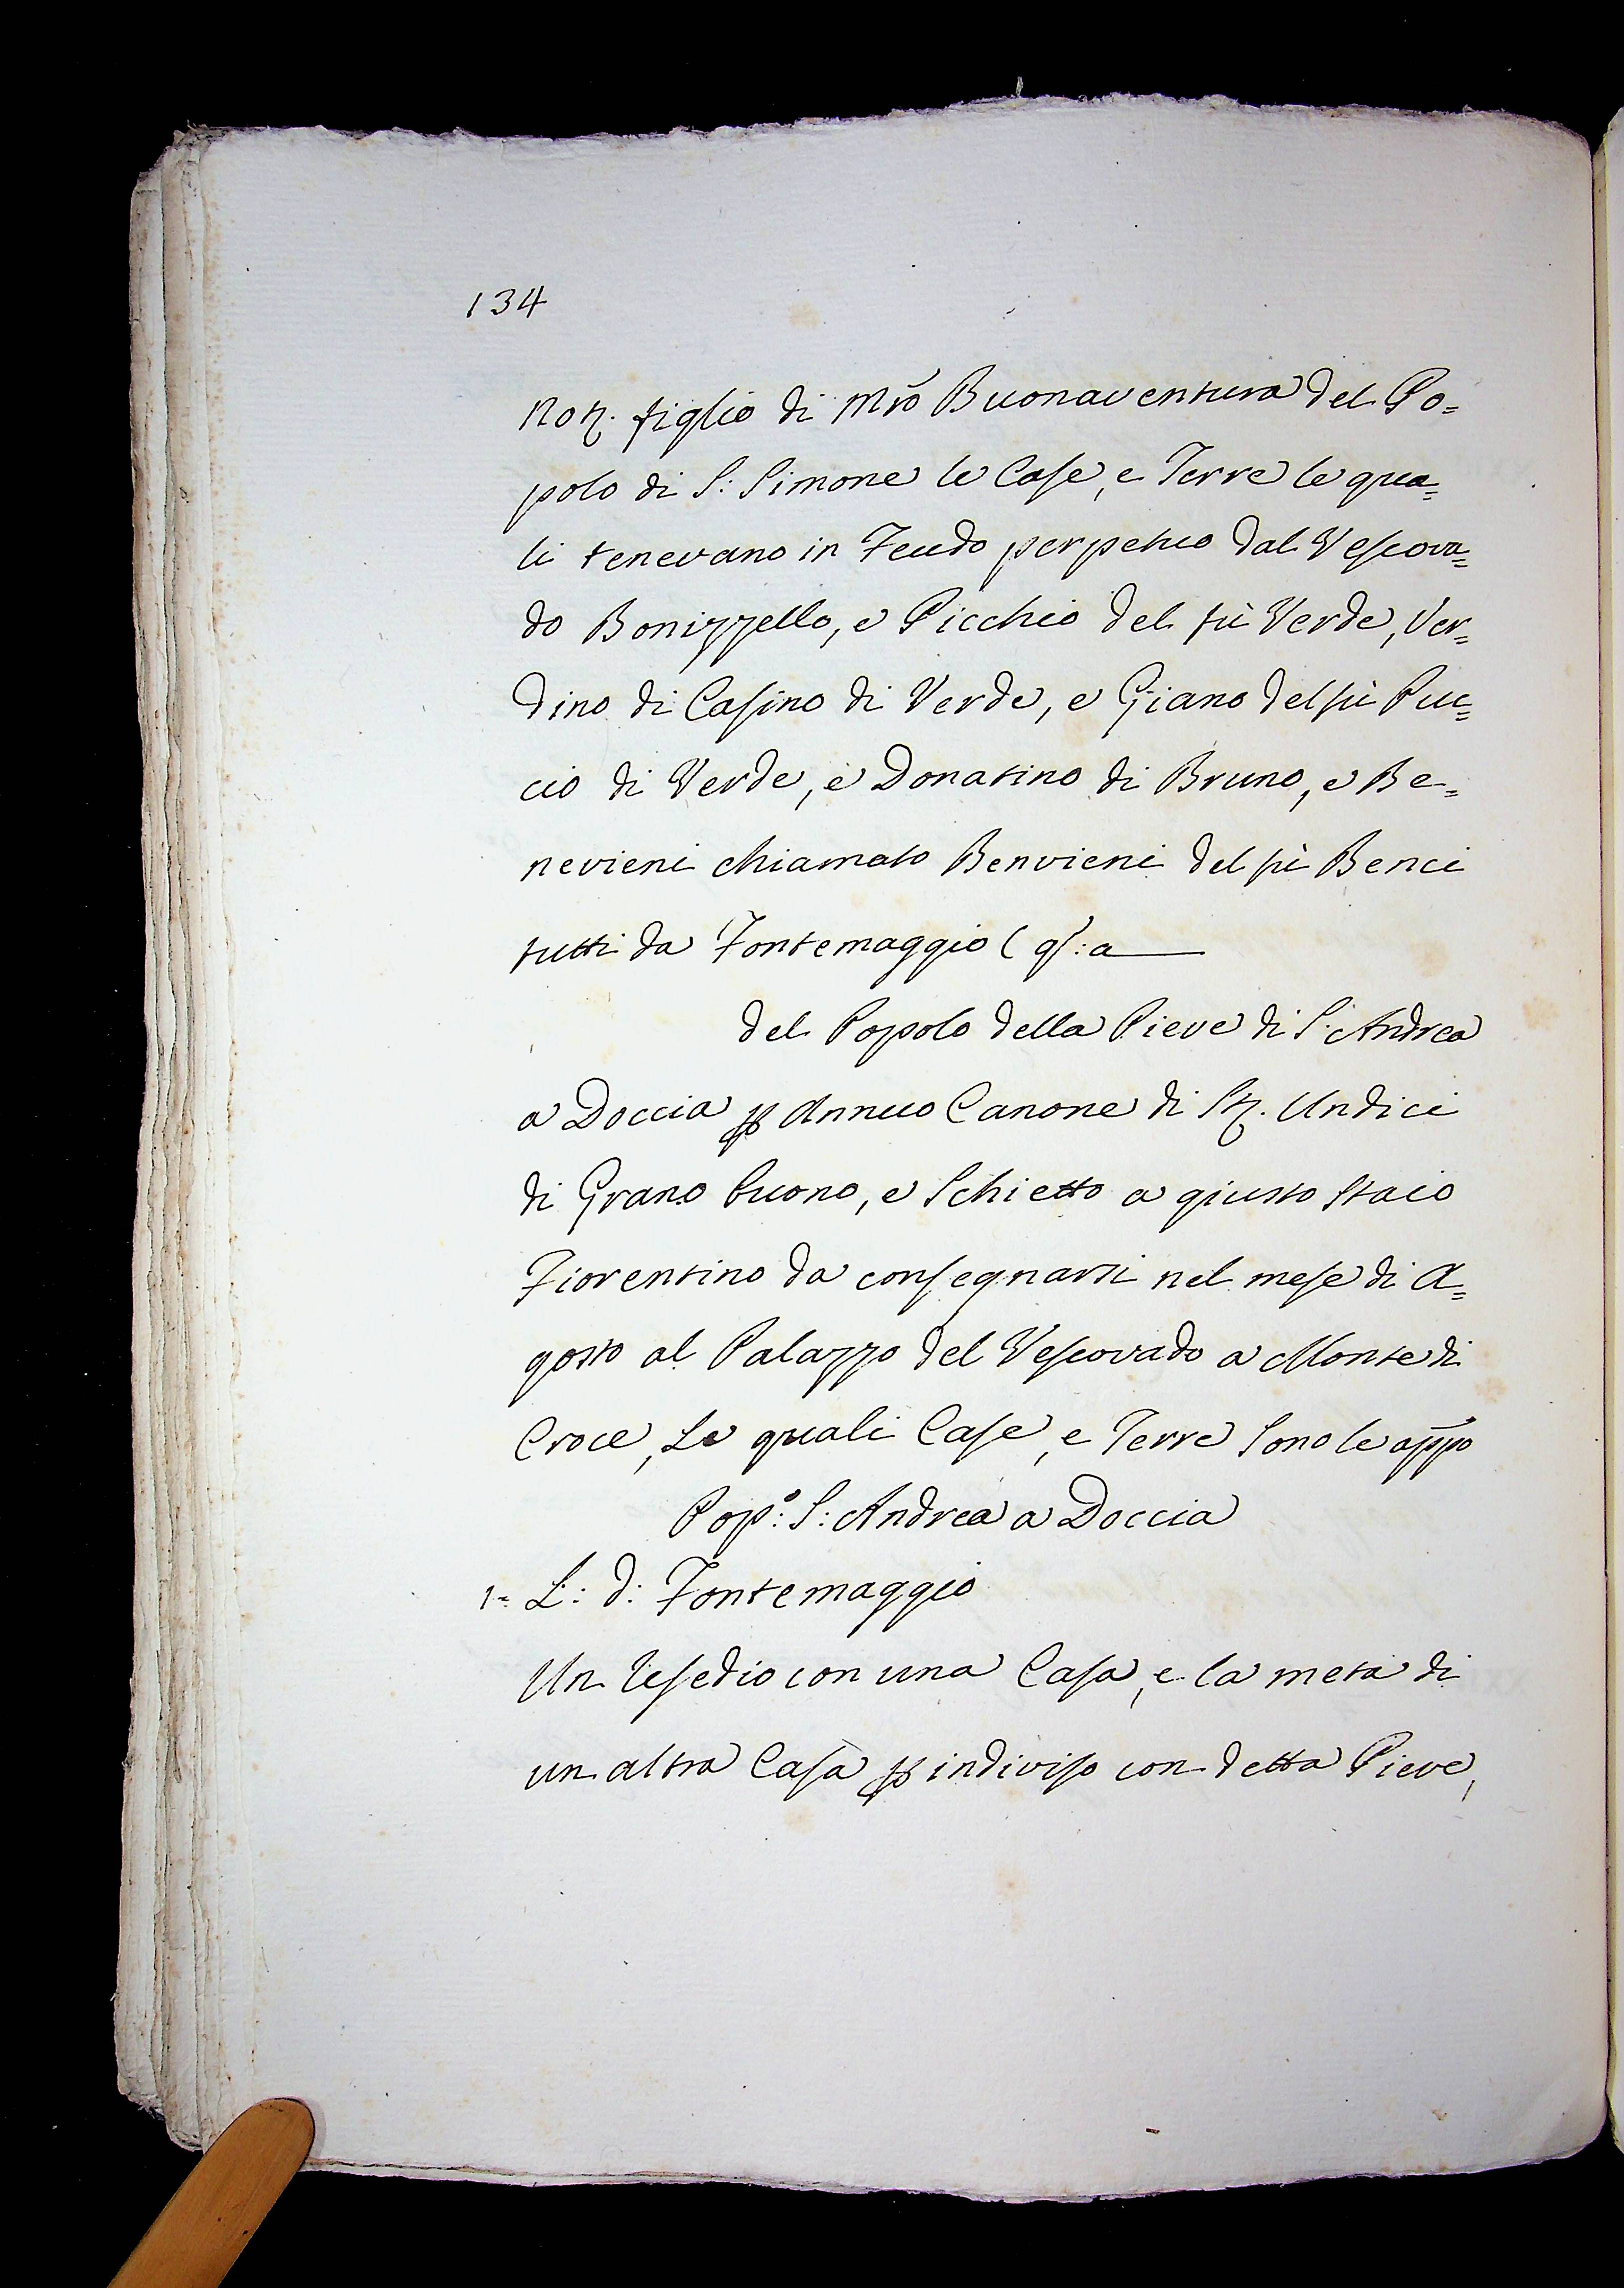 134
Noz. figlio di Mro Buonaventura del Po=
polo di S: Simone le Case, e Terre le qua=
li tenevano in Feudo perpetuo dal Vescova=
do Bonizzello, e Picchio del fù Verde, Ver=
dino di Casino di Verde, e Giano del fù Puc=
cio di Verde, e Donatino di Bruno, e Be=
nevieni chiamato Benvieni del fù Benci
tutti da Fontemaggio (
del Popolo della Pieve di S. Andrea
a Doccia p Annuo Canone di Stz. Undici
di Grano buono, e Schietto a giusto Staio
Fiorentino da consegnarsi nel mese di A=
gosto al Palazzo del Vescovado a Monte di
Croce, Le quali Case, e Terre Sono le appo
Pop:º S: Andrea a Doccia
1= L: d: Fontemaggio
Un Resedio con una Casa, e la metà di
un altra Casa p indiviso con detta Pieve,